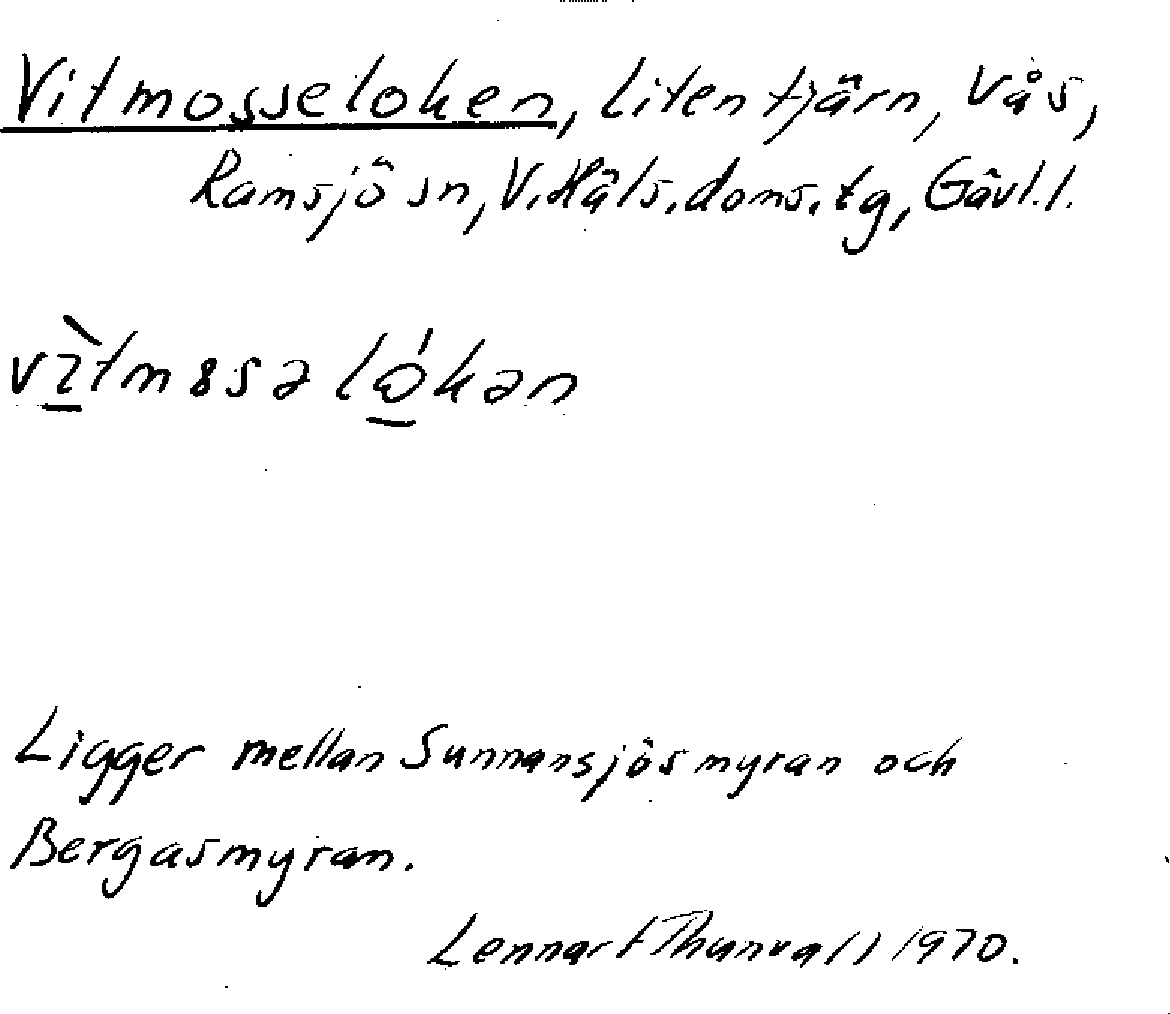 Vitmosseloken, liten tjärn, Vås,
Ramsjö sn, V. Häls. doms. tg, Gävl. l.
vìtmosə lókən
Ligger mellan Sunnansjösmyran och
Bergasmyran.
Lennart Thunvall 1970.